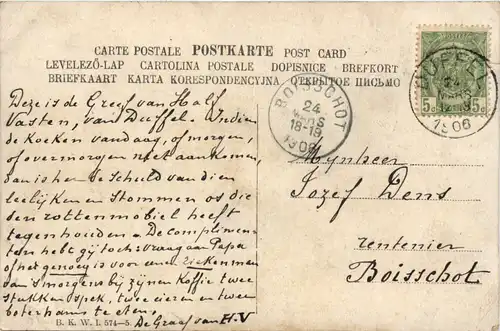 CARTE POSTALE POSTKARTE POST CARD
LEVELEZŐ-LAP CARTOLINA POSTALE DOPISNICE BREFKORT
BRIEFKAART KARTA KORESPONDENCYJNA ОТКРЫТОЕ ПИСЬМО
DUFFEL
24
MARS
12-
1906
5c 5c
BOISSCHOT
24
MARS
18-19
1906
Deze is de Greef van Half
Vasten, van Duffel. Indien
de Koeken vandaag, of morgen,
of overmorgen niet aankomen,
dan is her de Schuld van dien
leelijken en Stommen os die
den rottenmobiel heeft
tegenhouden. De complimen-
ten hebt gij toch: Vraag aan Papa
of het genoeg is voor eenen zieken men
van 's morgens bij zijnen Koffie twee
stukken spek, twee eieren en twee
boterhams te eten.
De Graaf van H.V
Mynheer
Jozef Dens
rentenier
Boisschot
B. K. W. I. 574-5